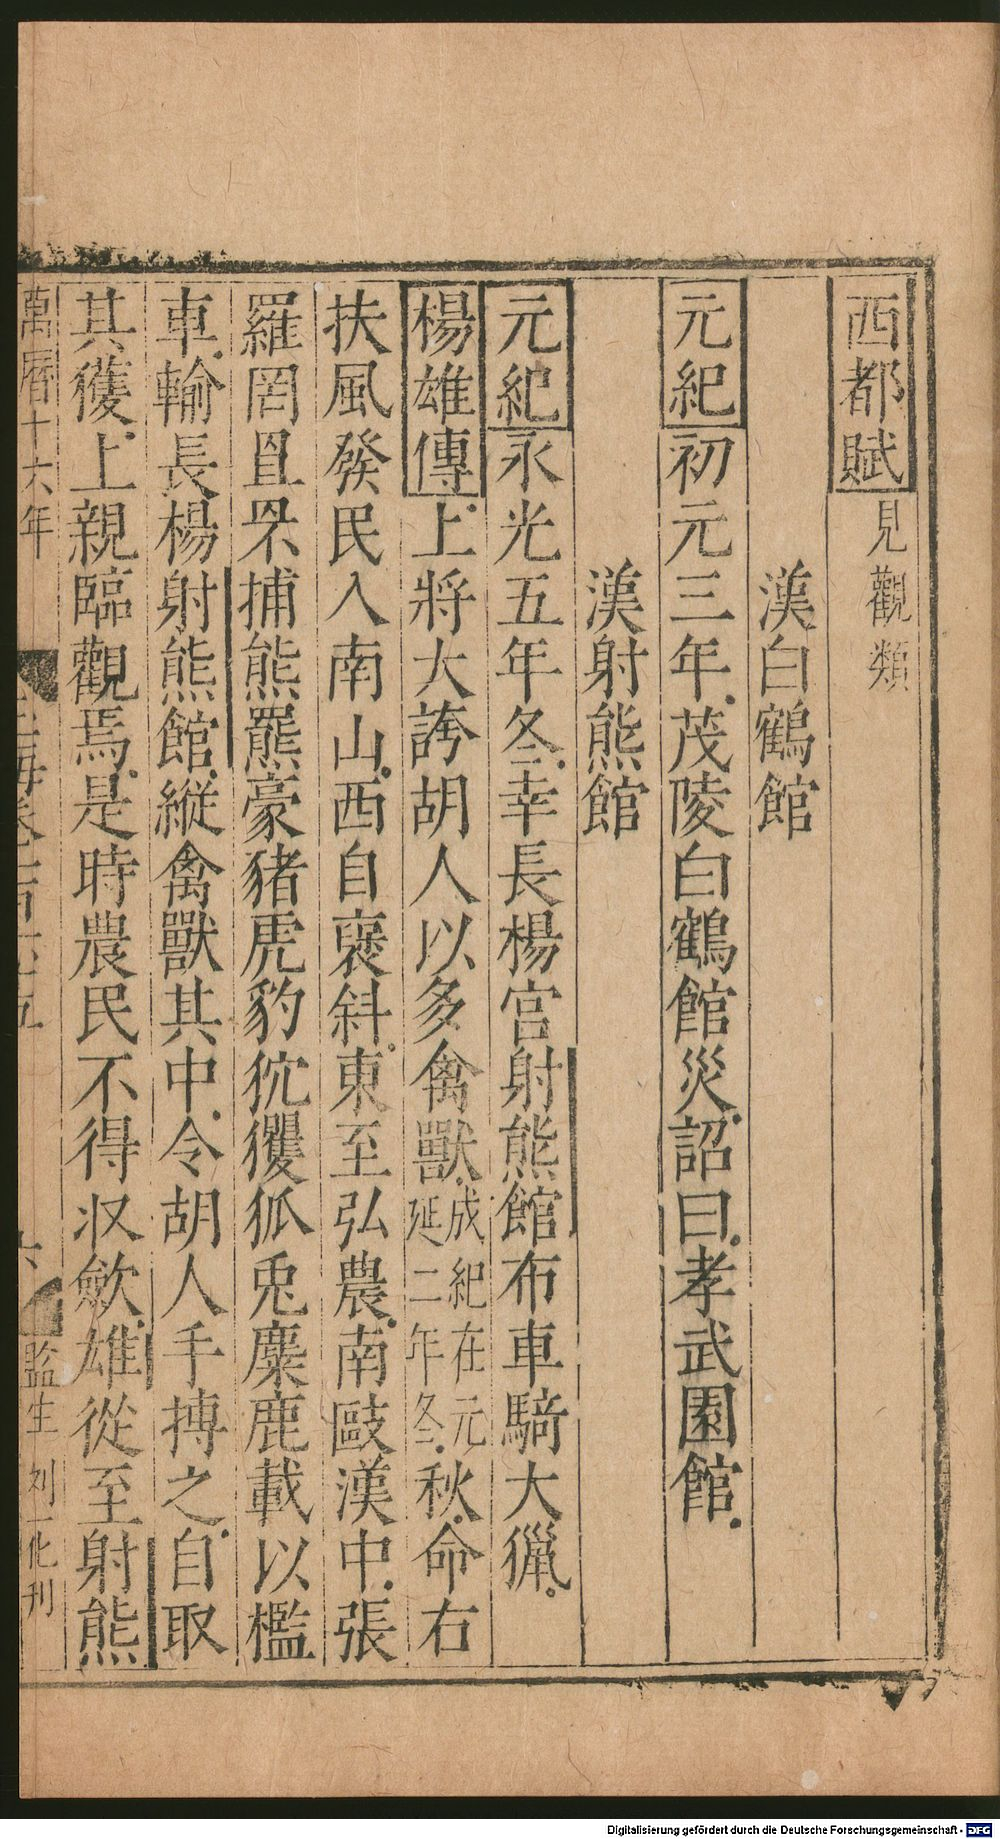 西都賦見觀類
漢白鶴館
元紀初元三年茂陵白鶴館災詔曰孝武園館
漢射熊館
元紀永光五年冬幸長楊宮射熊館布車騎大獵
楊雄傳上將大誇胡人以多禽獸成紀在元延二年冬秋命右
扶風發民入南山西自褒斜東至弘農南敺漢中張
羅罔罝罘捕熊羆豪豬虎豹狖玃狐兎麋鹿載以檻
車輸長楊射熊館縱禽獸其中令胡人手搏之自取
其獲上親臨觀焉是時農民不得収斂雄從至射熊
萬曆十六年
玉海卷一百六十五
六
監生刘一化刊
Digitalisierung gefördert durch die Deutsche Forschungsgemeinschaft - DFG